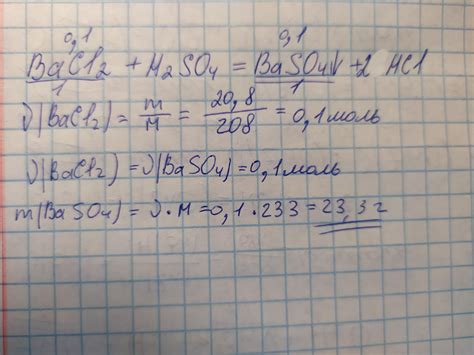 0,1 0,1
BaCl2 + H2SO4 = BaSO4↓ + 2 HCl
1 1
ν(BaCl2) = m/M = 20,8/208 = 0,1 моль
ν(BaCl2) = ν(BaSO4) = 0,1 моль
m(BaSO4) = ν · M = 0,1 · 233 = 23,3 г